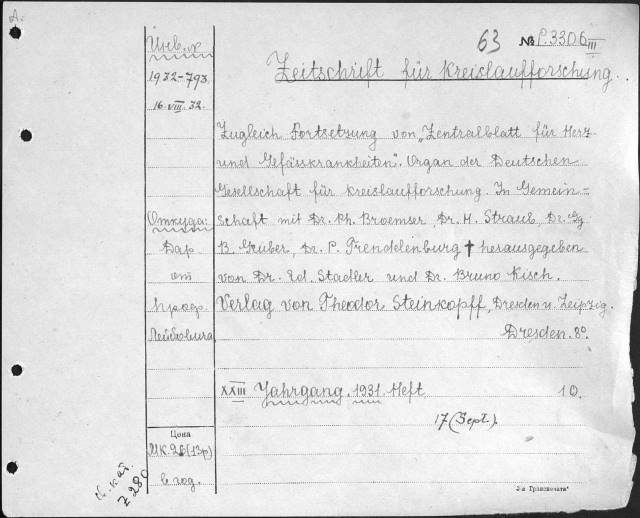 A.
63 № P.3306 III
Инв. х
1932-793
16.VIII.32.
Zeitschrift für Kreislaufforschung.
Zugleich Fortsetzung von „Zentralblatt für Herz-
und Gefässkrankheiten". Organ der Deutschen
Gesellschaft für Kreislaufforschung. In Gemein=
schaft mit Dr. Ph. Broemser, Dr. H. Straub, Dr.
B. Gruber, Dr. P. Trendelenburg † herausgegeben
von Dr. Ed. Stadler und Dr. Bruno Kisch.
Verlag von Theodor Steinkopff, Dresden u. Leipzig.
Dresden. 8º.
Откуда:
Дар
от
проф.
Лейбовича
XXIII Jahrgang. 1931. Heft 10.
17 (Sept).
Цена
МК. (13р)
в год.
кат.
7280
3-я Транспечати